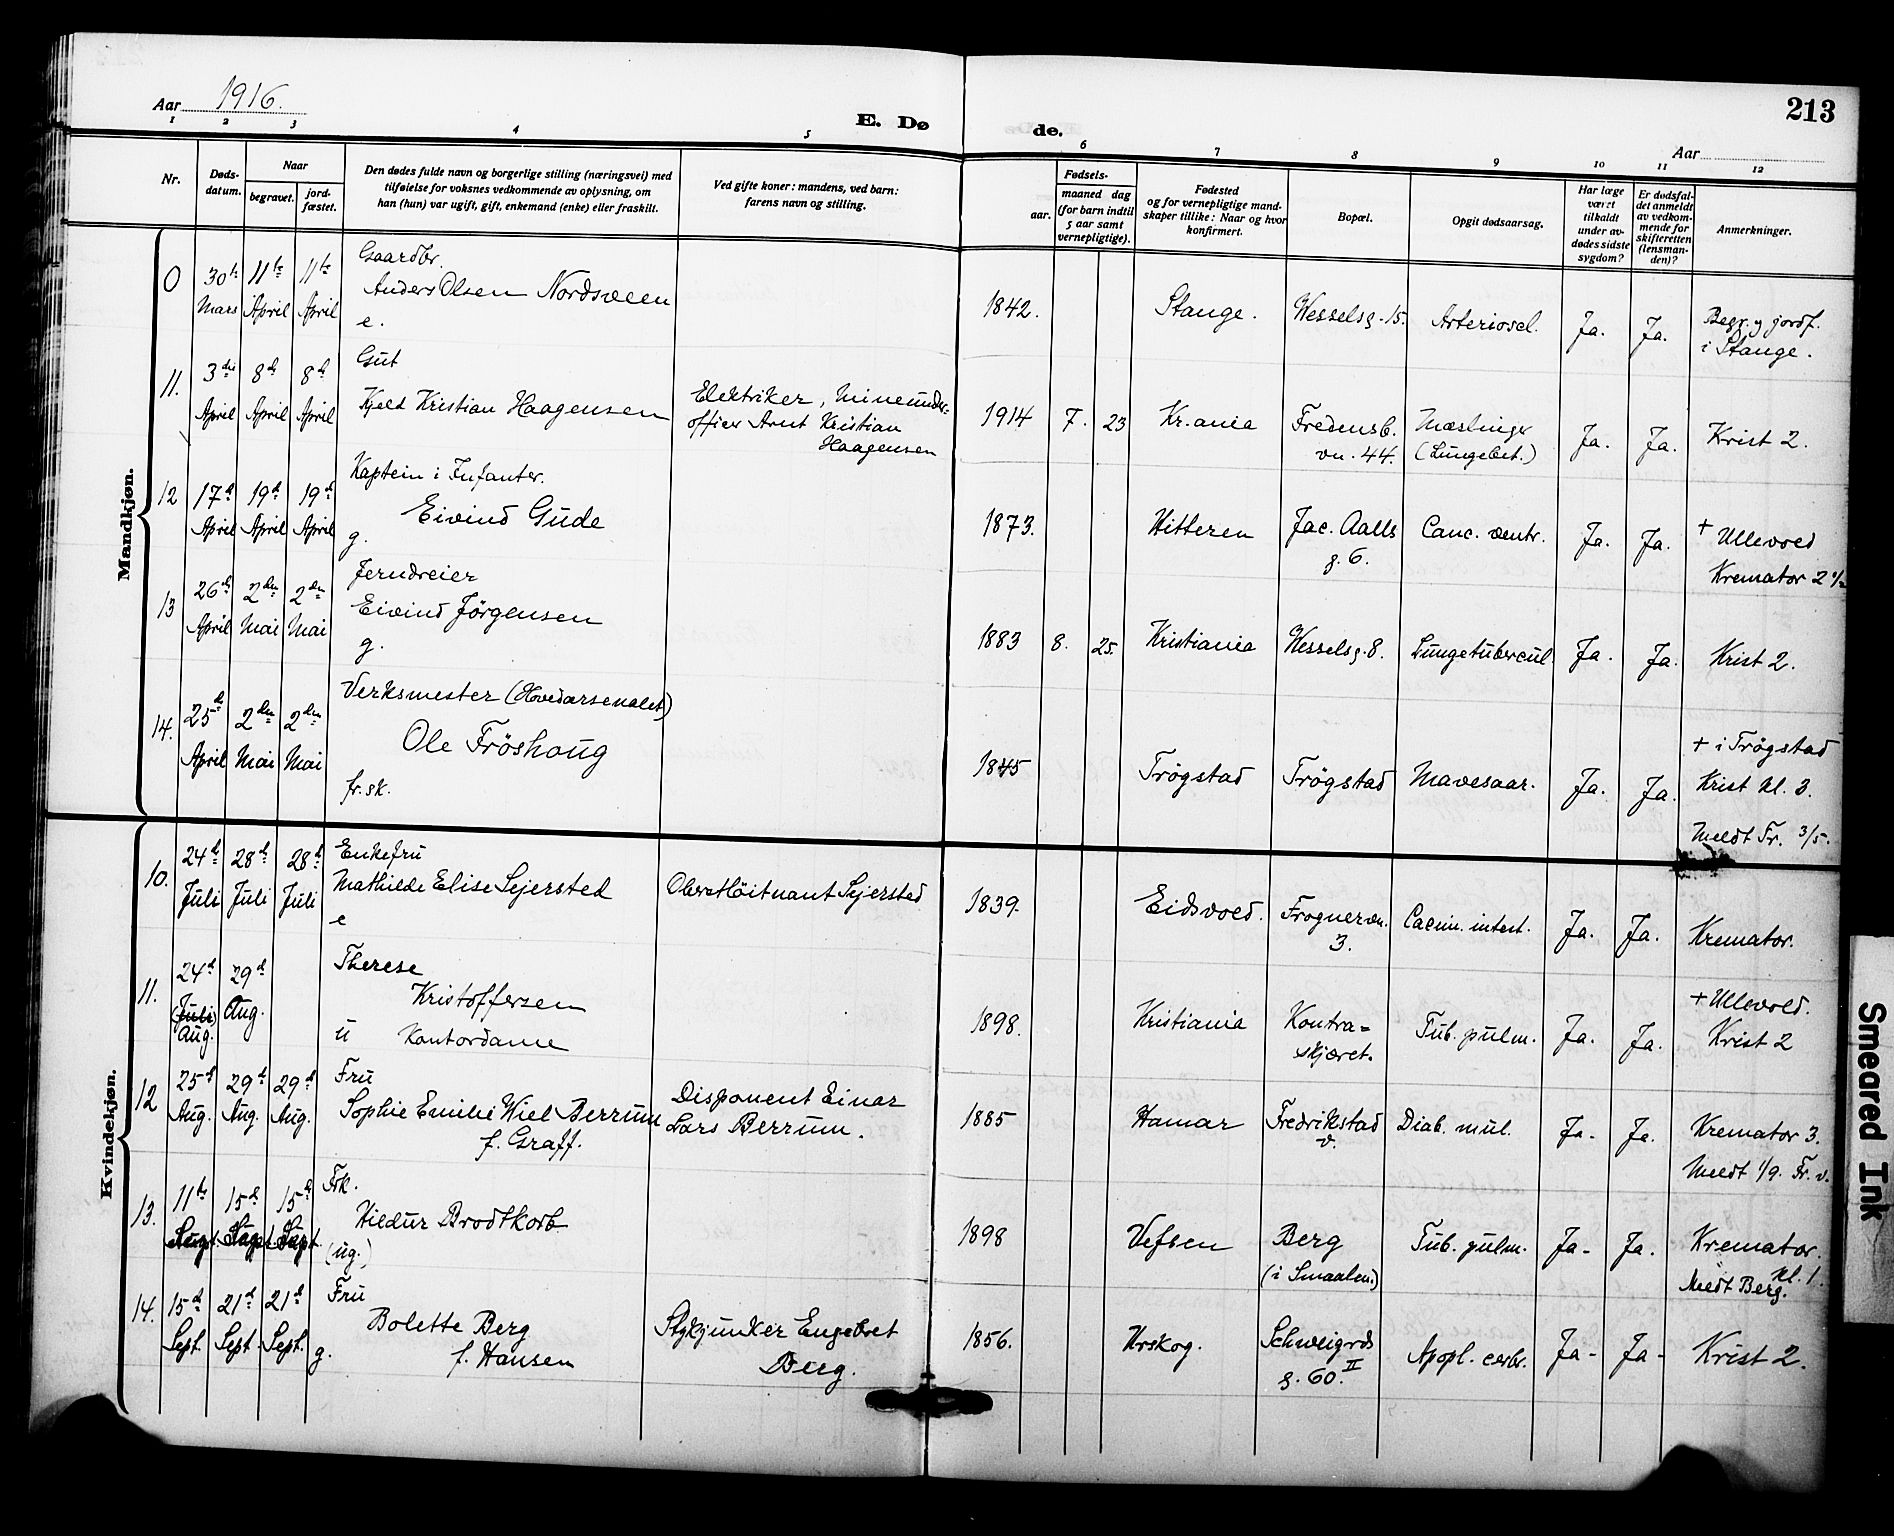 Aar 1916.
E. Døde.
213
Aar
1 2 3 4 5 6 7 8 9 10 11 12
Nr.
Døds-
datum.
Naar
begravet.
jord-
fæstet.
Den dødes fulde navn og borgerlige stilling (næringsvei) med
tilføielse for voksnes vedkommende av oplysning, om
han (hun) var ugift, gift, enkemand (enke) eller fraskilt.
Ved gifte koner: mandens, ved barn:
farens navn og stilling.
Fødsels-
aar.
maaned dag
(for barn indtil
5 aar samt
vernepligtige).
Fødested
og for vernepligtige mand-
skaper tillike: Naar og hvor
konfirmert.
Bopæl.
Opgit dødsaarsag.
Har læge
været
tilkaldt
under av-
dødes sidste
sygdom?
Er dødsfal-
det anmeldt
av vedkom-
mende for
skifteretten
(lensman-
den)?
Anmerkninger.
Mandkjøn.
0 30te Mars 11te April 11te April
Gaardbr.
Anders Olsen Nordsveen
e.
1842. Stange. Wesselsg. 15. Arterioscl. Ja. Ja.
Begr. og jordf.
i Stange.
11. 3die April 8de April 8de April
Gut
Kjeld Kristian Haagensen
Elektriker, Mineunder-
officer Arnt Kristian
Haagensen
1914 7. 23 Kr.ania
Fredensb.
vn. 44.
Mæslinger
(Lungebet.)
Ja. Ja. Krist 2.
12 17de April 19de April 19de April
Kaptein i Infanter.
Eivind Gude
g.
1873. Hitteren
Jac. Aalls
g. 6.
Canc. ventr. Ja. Ja.
+ Ullevold
Kremator 2
13 26de April 2den Mai 2den Mai
Jerndreier
Eivind Jörgensen
g.
1883 8. 25. Kristiania Wesselsg. 8. Lungetubercul. Ja. Ja. Krist 2.
14. 25de April 2den Mai 2den Mai
Verksmester (Hovedarsenalet)
Ole Fröshaug
fr. sk.
1845 Trögstad Trögstad Mavesaar. Ja. Ja.
+ i Trögstad
Krist kl. 3.
Meldt Tr. 3/5.
Kvindekjøn.
10. 24de Juli 28de Juli 28de Juli
Enkefru
Mathilde Elise Sejersted
e
Oberstlöitnant Sejersted
1839. Eidsvold.
Frognervn.
3.
Ja. Ja. Kremator.
11. 24de (Juli) Aug. 29de Aug.
Therese
Kristoffersen
u Kontordame
1898. Kristiania
Kontra=
skjæret.
Tub. pulm. Ja. Ja.
+ Ullevold.
Krist 2
12 25de Aug. 29de Aug. 29de Aug.
Fru
Sophie Emilie Wiel Berrum
f. Graff.
Disponent Einar
Lars Berrum.
1885 Hamar
Fredrikstad
v.
Diab. mel. Ja. Ja.
Kremator 3.
Meldt 1/9. Fr. v.
13. 11te Sept. 15de Sept. 15de Sept.
Frk.
Hildur Brodtkorb
(ug.)
1898 Vefsen
Berg
(i Smaalen.)
Tub. pulm. Ja. Ja.
Kremator.
kl. 1.
Meldt Berg.
14. 15de Sept. 21de Sept. 21de Sept.
Fru
Bolette Berg
f. Hansen
g.
Stykjunker Engebret
Berg.
1856. Urskog.
Schweigrds
g. 60. II
Apopl. cerbr. Ja. Ja. Krist 2.
Smeared Ink